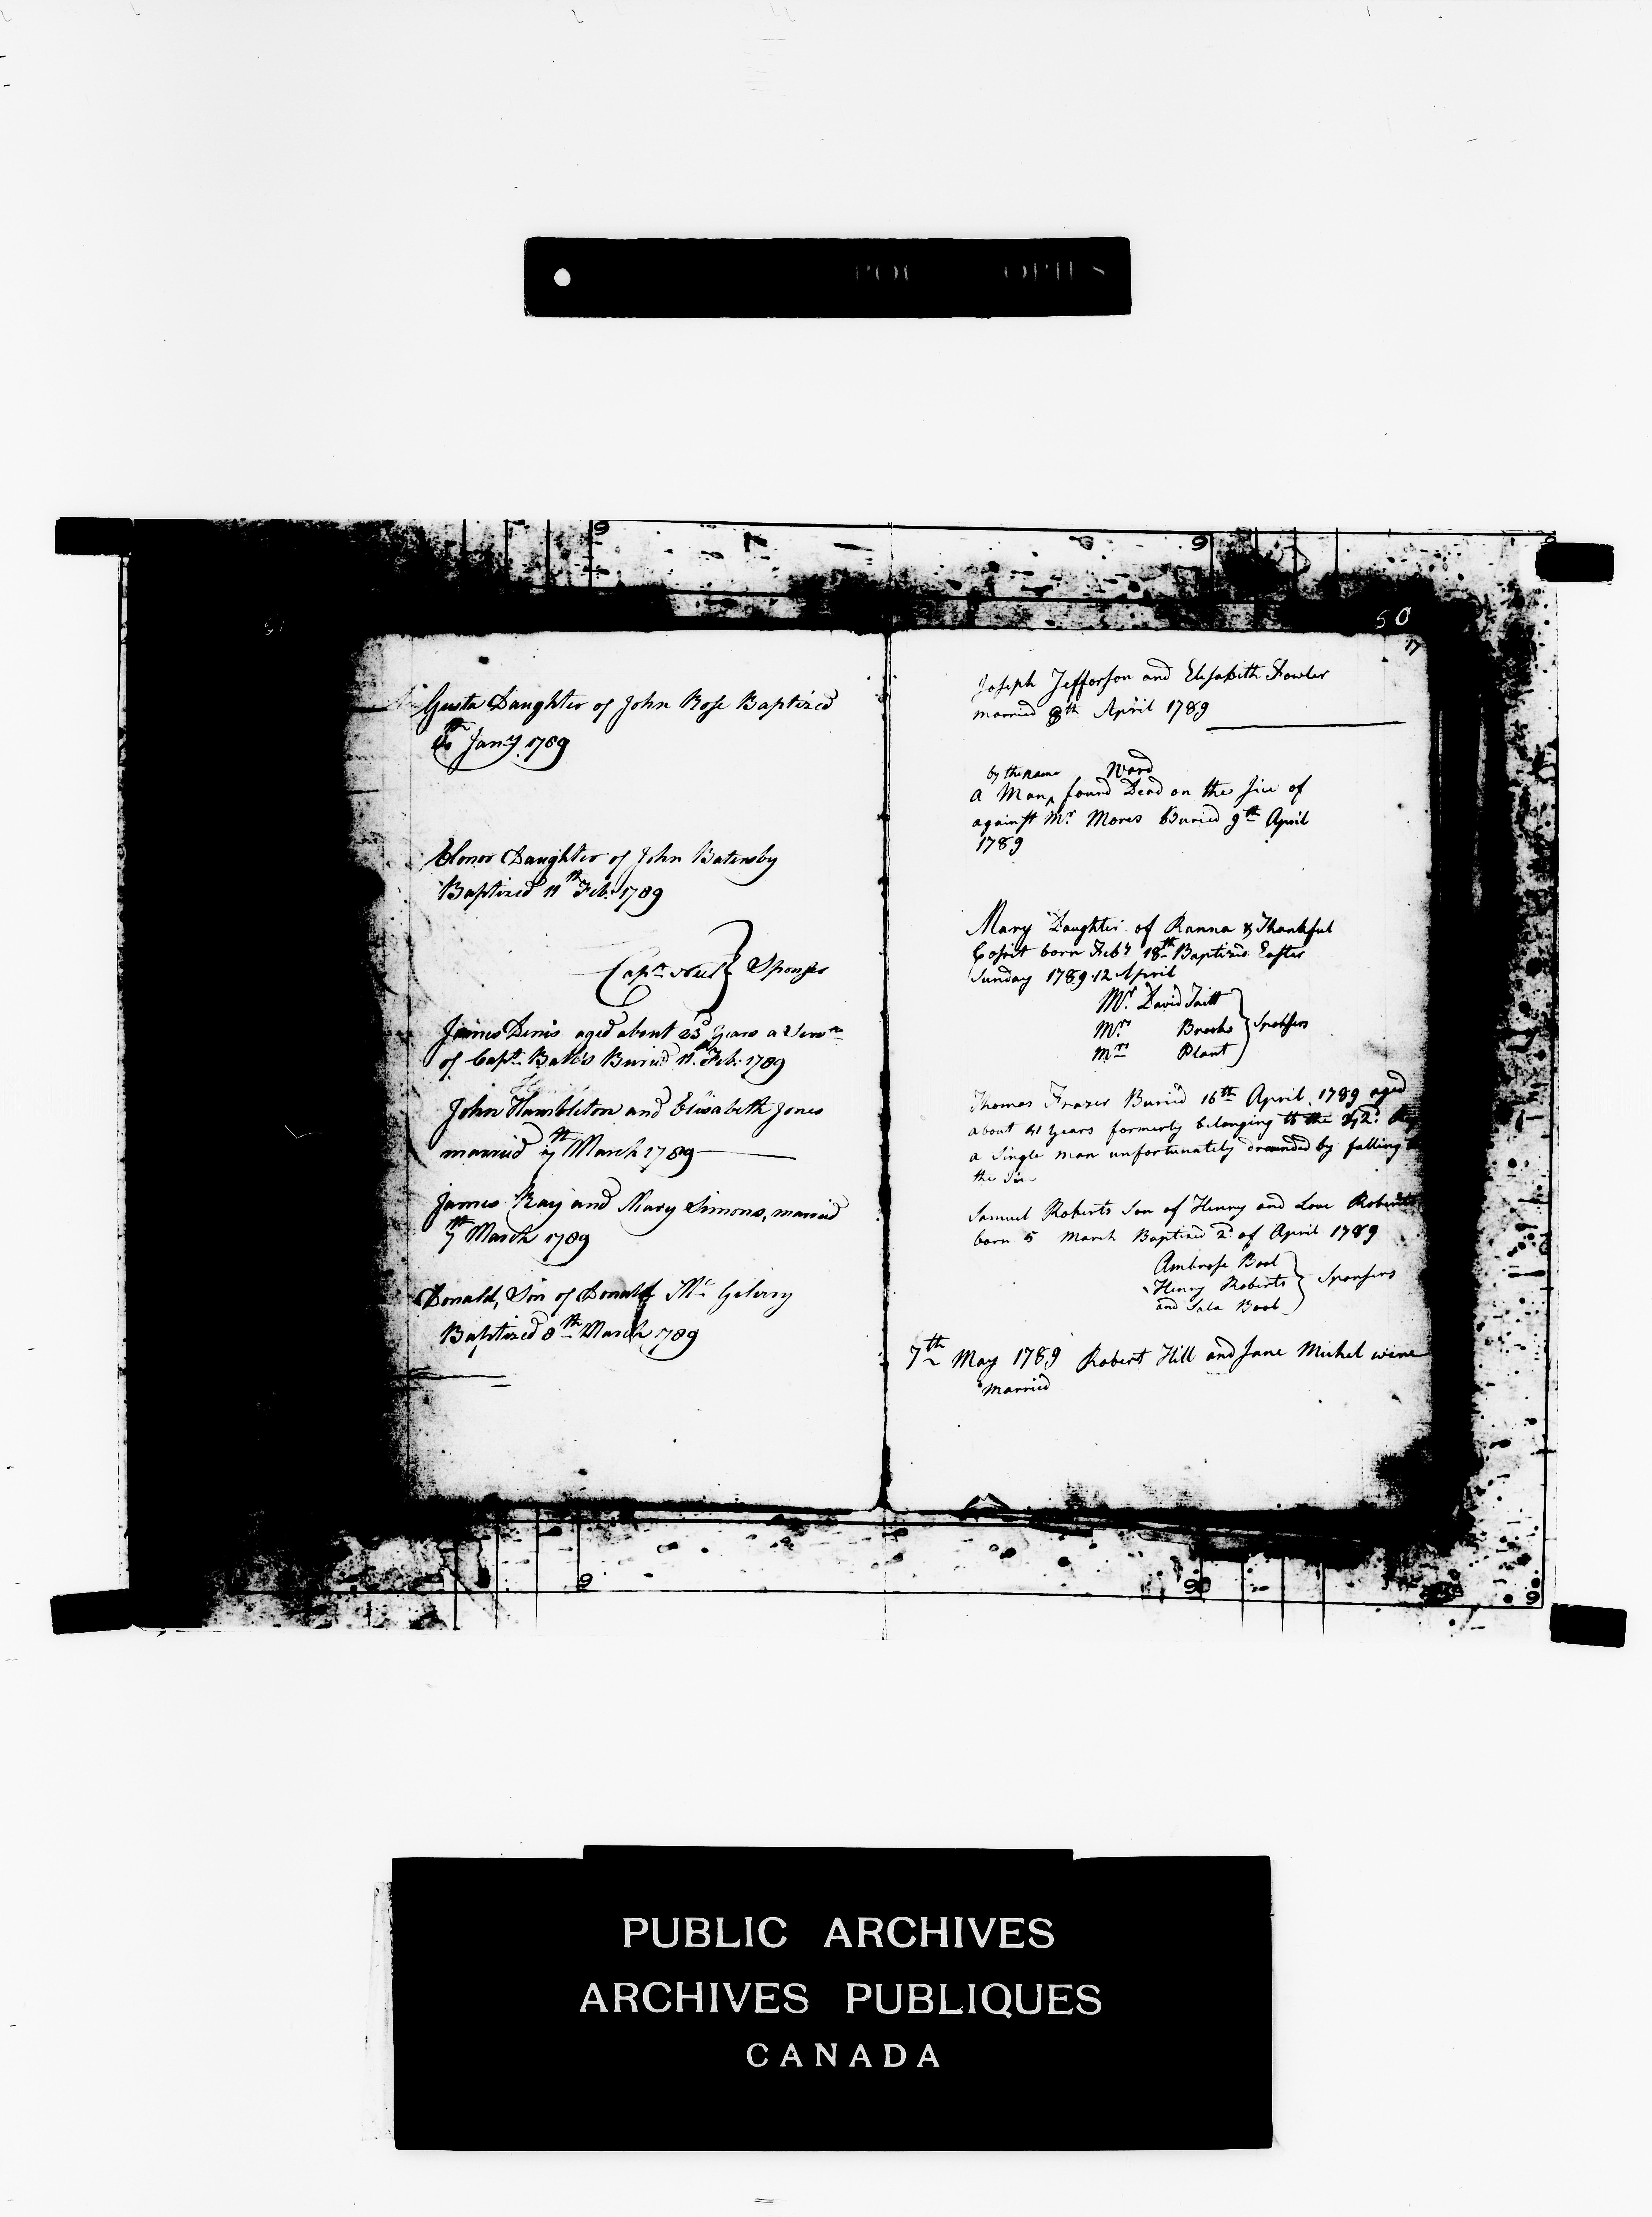 50
17
Gusta Daughter of John Rose Baptized
Jany 1789
Elonor Daughter of John Batersby
Baptized 11th Feb: 1789
Capn Sponser
James Denis aged about 23 Years a Servt
of Capt. Bakes Buried 11th Feb: 1789
John Hambleton and Elisabeth Jones
married 7th March 1789
James Ray and Mary Simons, married
7th March 1789
Donald, Son of Donald Mc Gilivry
Baptized 8th March 1789
Joseph Jefferson and Elisabeth Fowler
married 8th April 1789
by the name Ward
a Man, found Dead on the Jice of
against Mr Mores Buried 9th April
1789
Mary Daughter of Ranna & Thankful
Cosit born Feby 18th Baptized Easter
Sunday 1789. 12 April
Mr. David Taitt
Mrs Brooks Sponsers
Mrs Plant
Thomas Frazer Buried 16th April 1789 aged
about 41 Years formerly belonging to the
a Single man unfortunately drownded by falling
the
Samuel Roberts Son of Henry and Love Roberts
born 5 March Baptized 2d of April 1789
Ambrose Bool
Henry Roberts Sponsers
and Sala Bool
7th May 1789 Robert Hill and Jane Michel were
married
PUBLIC ARCHIVES
ARCHIVES PUBLIQUES
CANADA